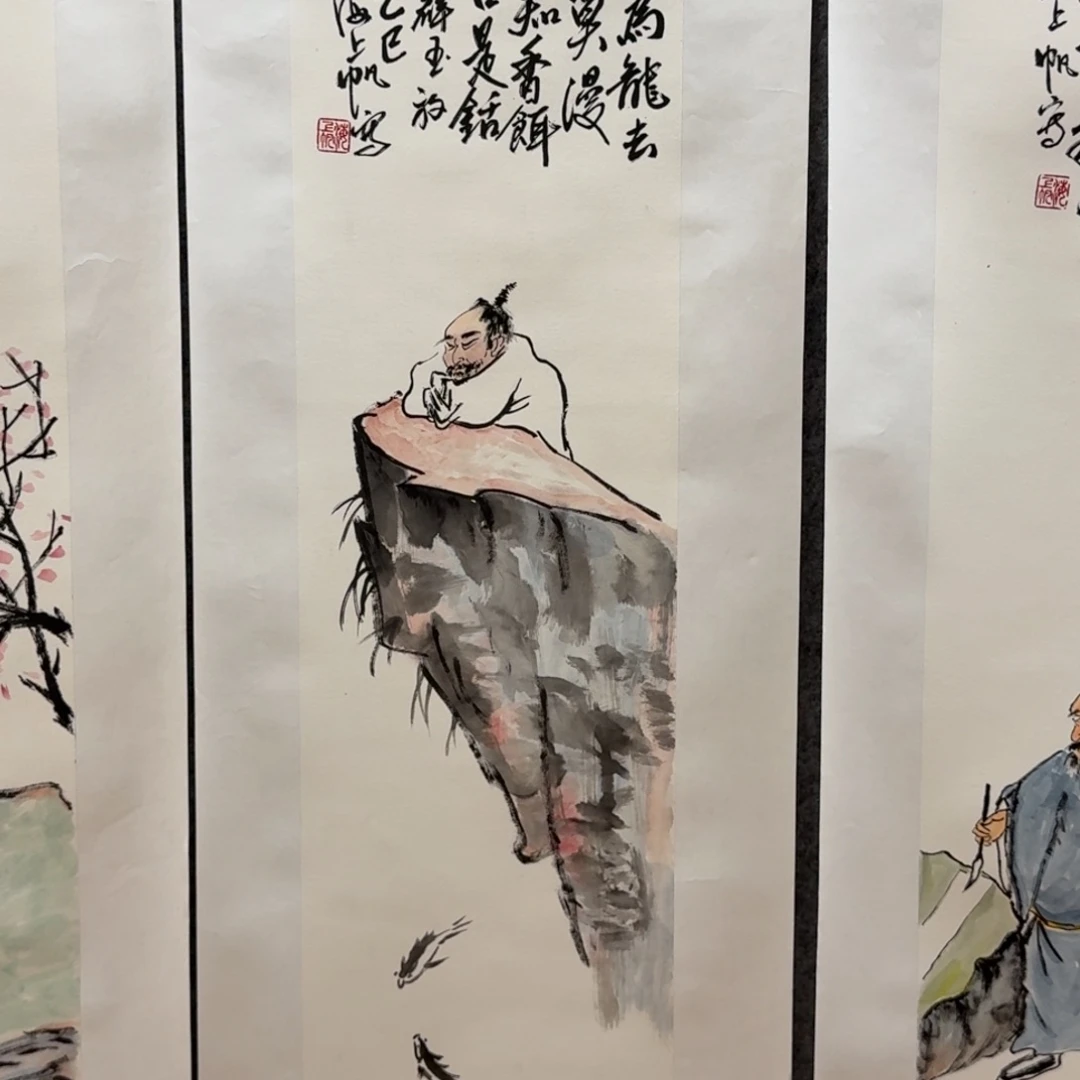 為龍去
莫漫
知香餌
口是銛
群玉放
乙巳
海上帆寫
上帆寫